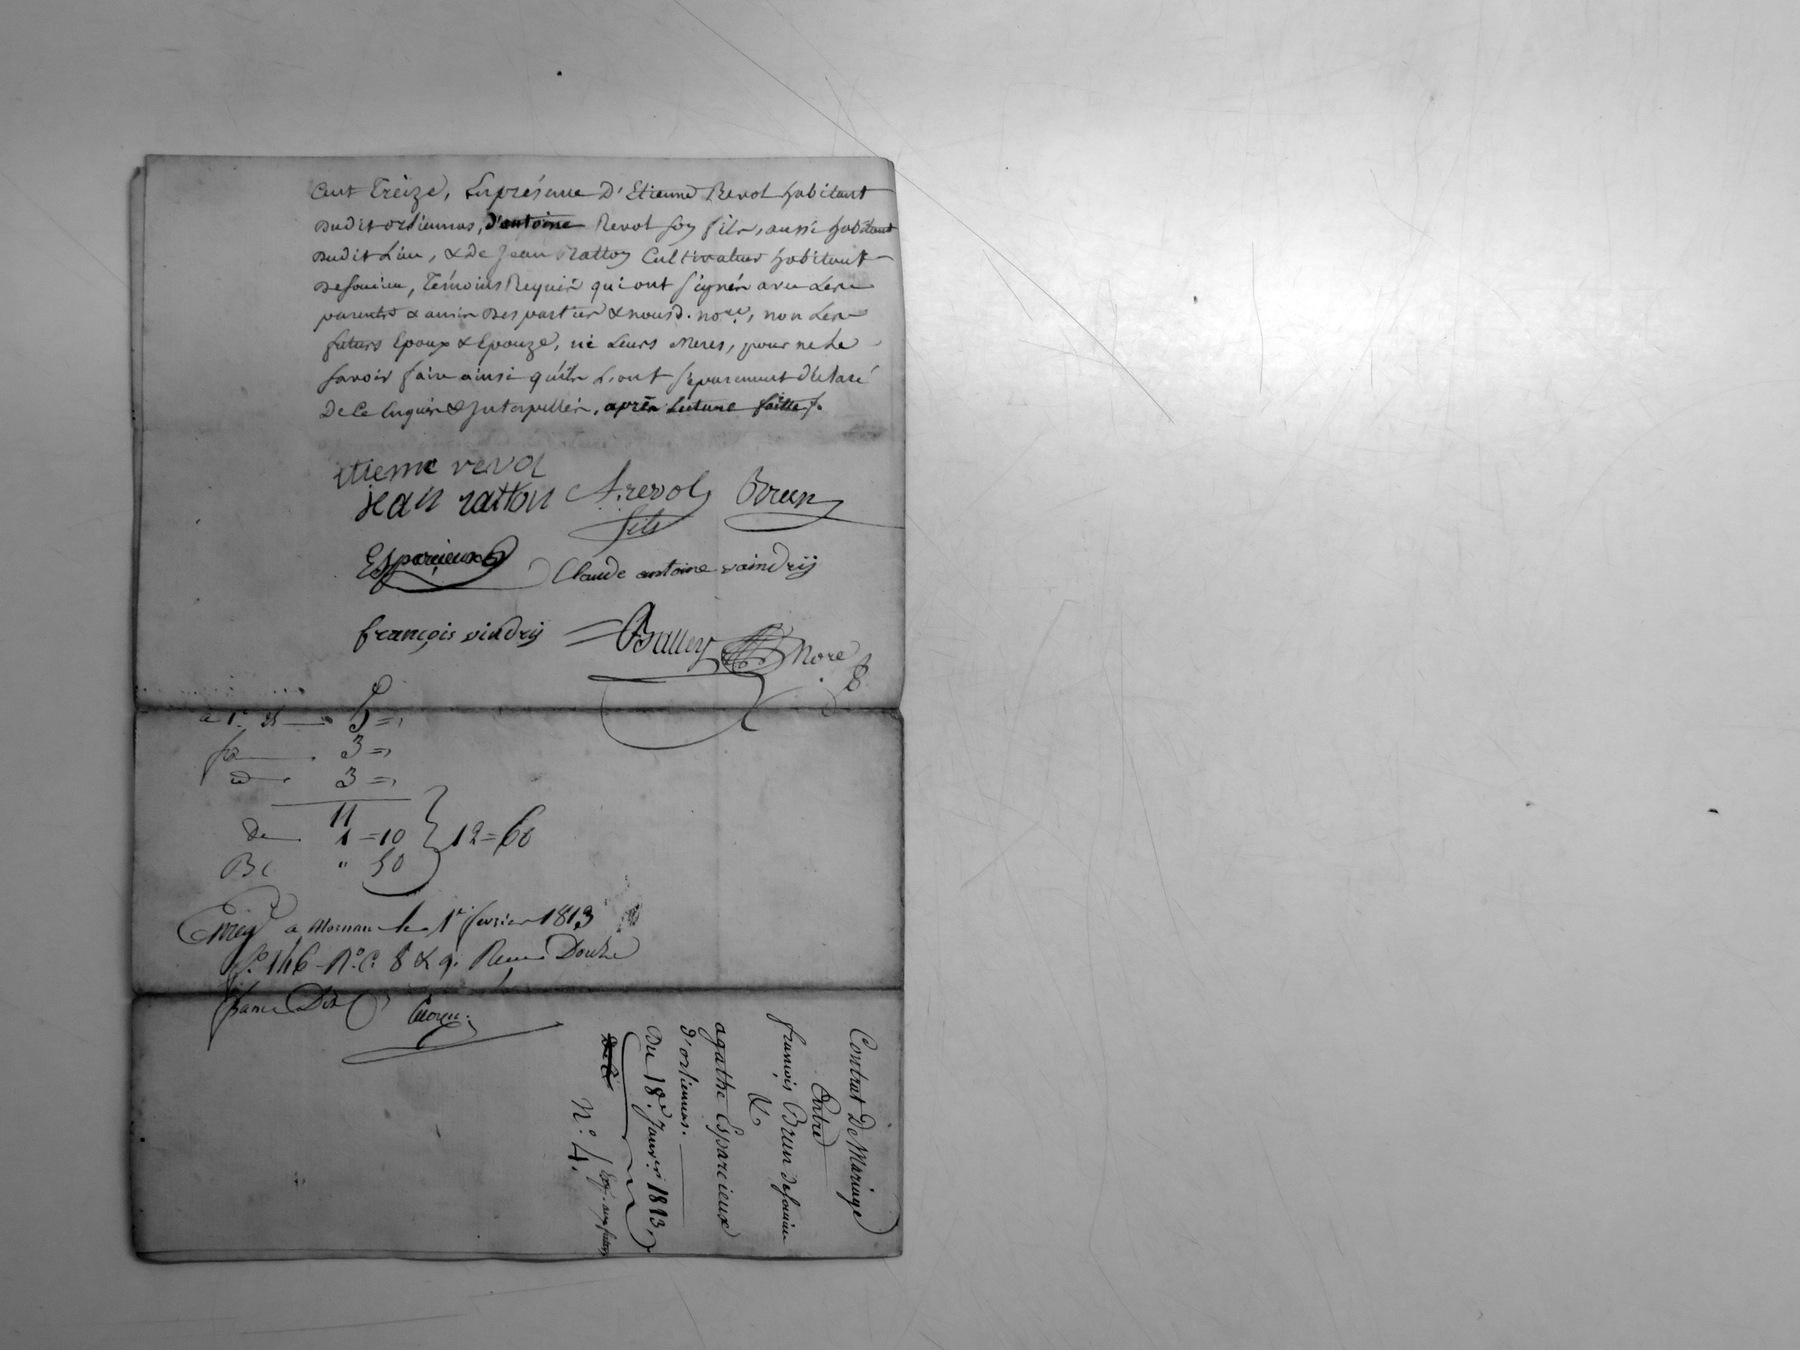 Cent Treize, En présence D'Etienne Revol habitant
Dudit orliennas, d'antoine Revol son fils, aussi habitant
Dudit Lieu, & de Jean Ratton Cultivateur habitant
De soucieu, Témoins Requis qui ont signés avec Les
parents & amis Des parties & nous d. nore, non Les
futurs Epoux & Epouze, ni Leurs Meres, pour ne Le
savoir faire ainsi qu'ils L'ont séparement déclaré
De Ce Enquis & Interpellés, après Lecture faitte.
etienne revol
jean ratton A. revol fils Brun
Esparcieux Claude antoine vaindrij
françois vindrij Balley Nore
à 1 5 =,
3 =,
3 =,
11
De 1 = 10 12 = 60
" 50
Enreg à Mornan le 1er fevrier 1813
fo. 146 Ro. C. 8 & 9. Reçu Douze
francs Dix
Contrat De Mariage
Entre
françois Brun de soucieu
&
agathe Esparcieux
d'orliennas.
Du 18e. Janvier 1813,
No. 4.